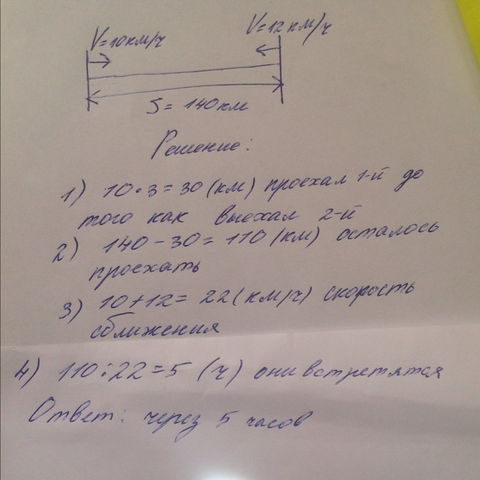 V=10км/ч V=12км/ч
S= 140км
Решение:
1) 10·3=30 (км) проехал 1-й до
того как выехал 2-й
2) 140-30=110 (км) осталось
проехать
3) 10+12= 22(км/ч) скорость
сближения
4) 110:22=5 (ч) они встретятся
Ответ: через 5 часов